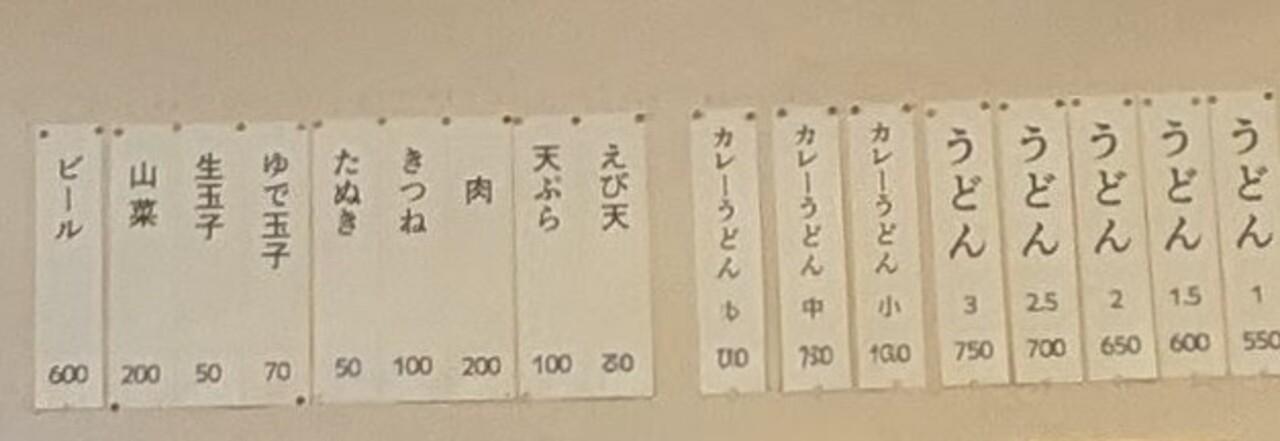 うどん 1 550
うどん 1.5 600
うどん 2 650
うどん 2.5 700
うどん 3 750
カレーうどん 小
カレーうどん 中
カレーうどん
えび天
天ぷら 100
肉 200
きつね 100
たぬき 50
ゆで玉子 70
生玉子 50
山菜 200
ビール 600